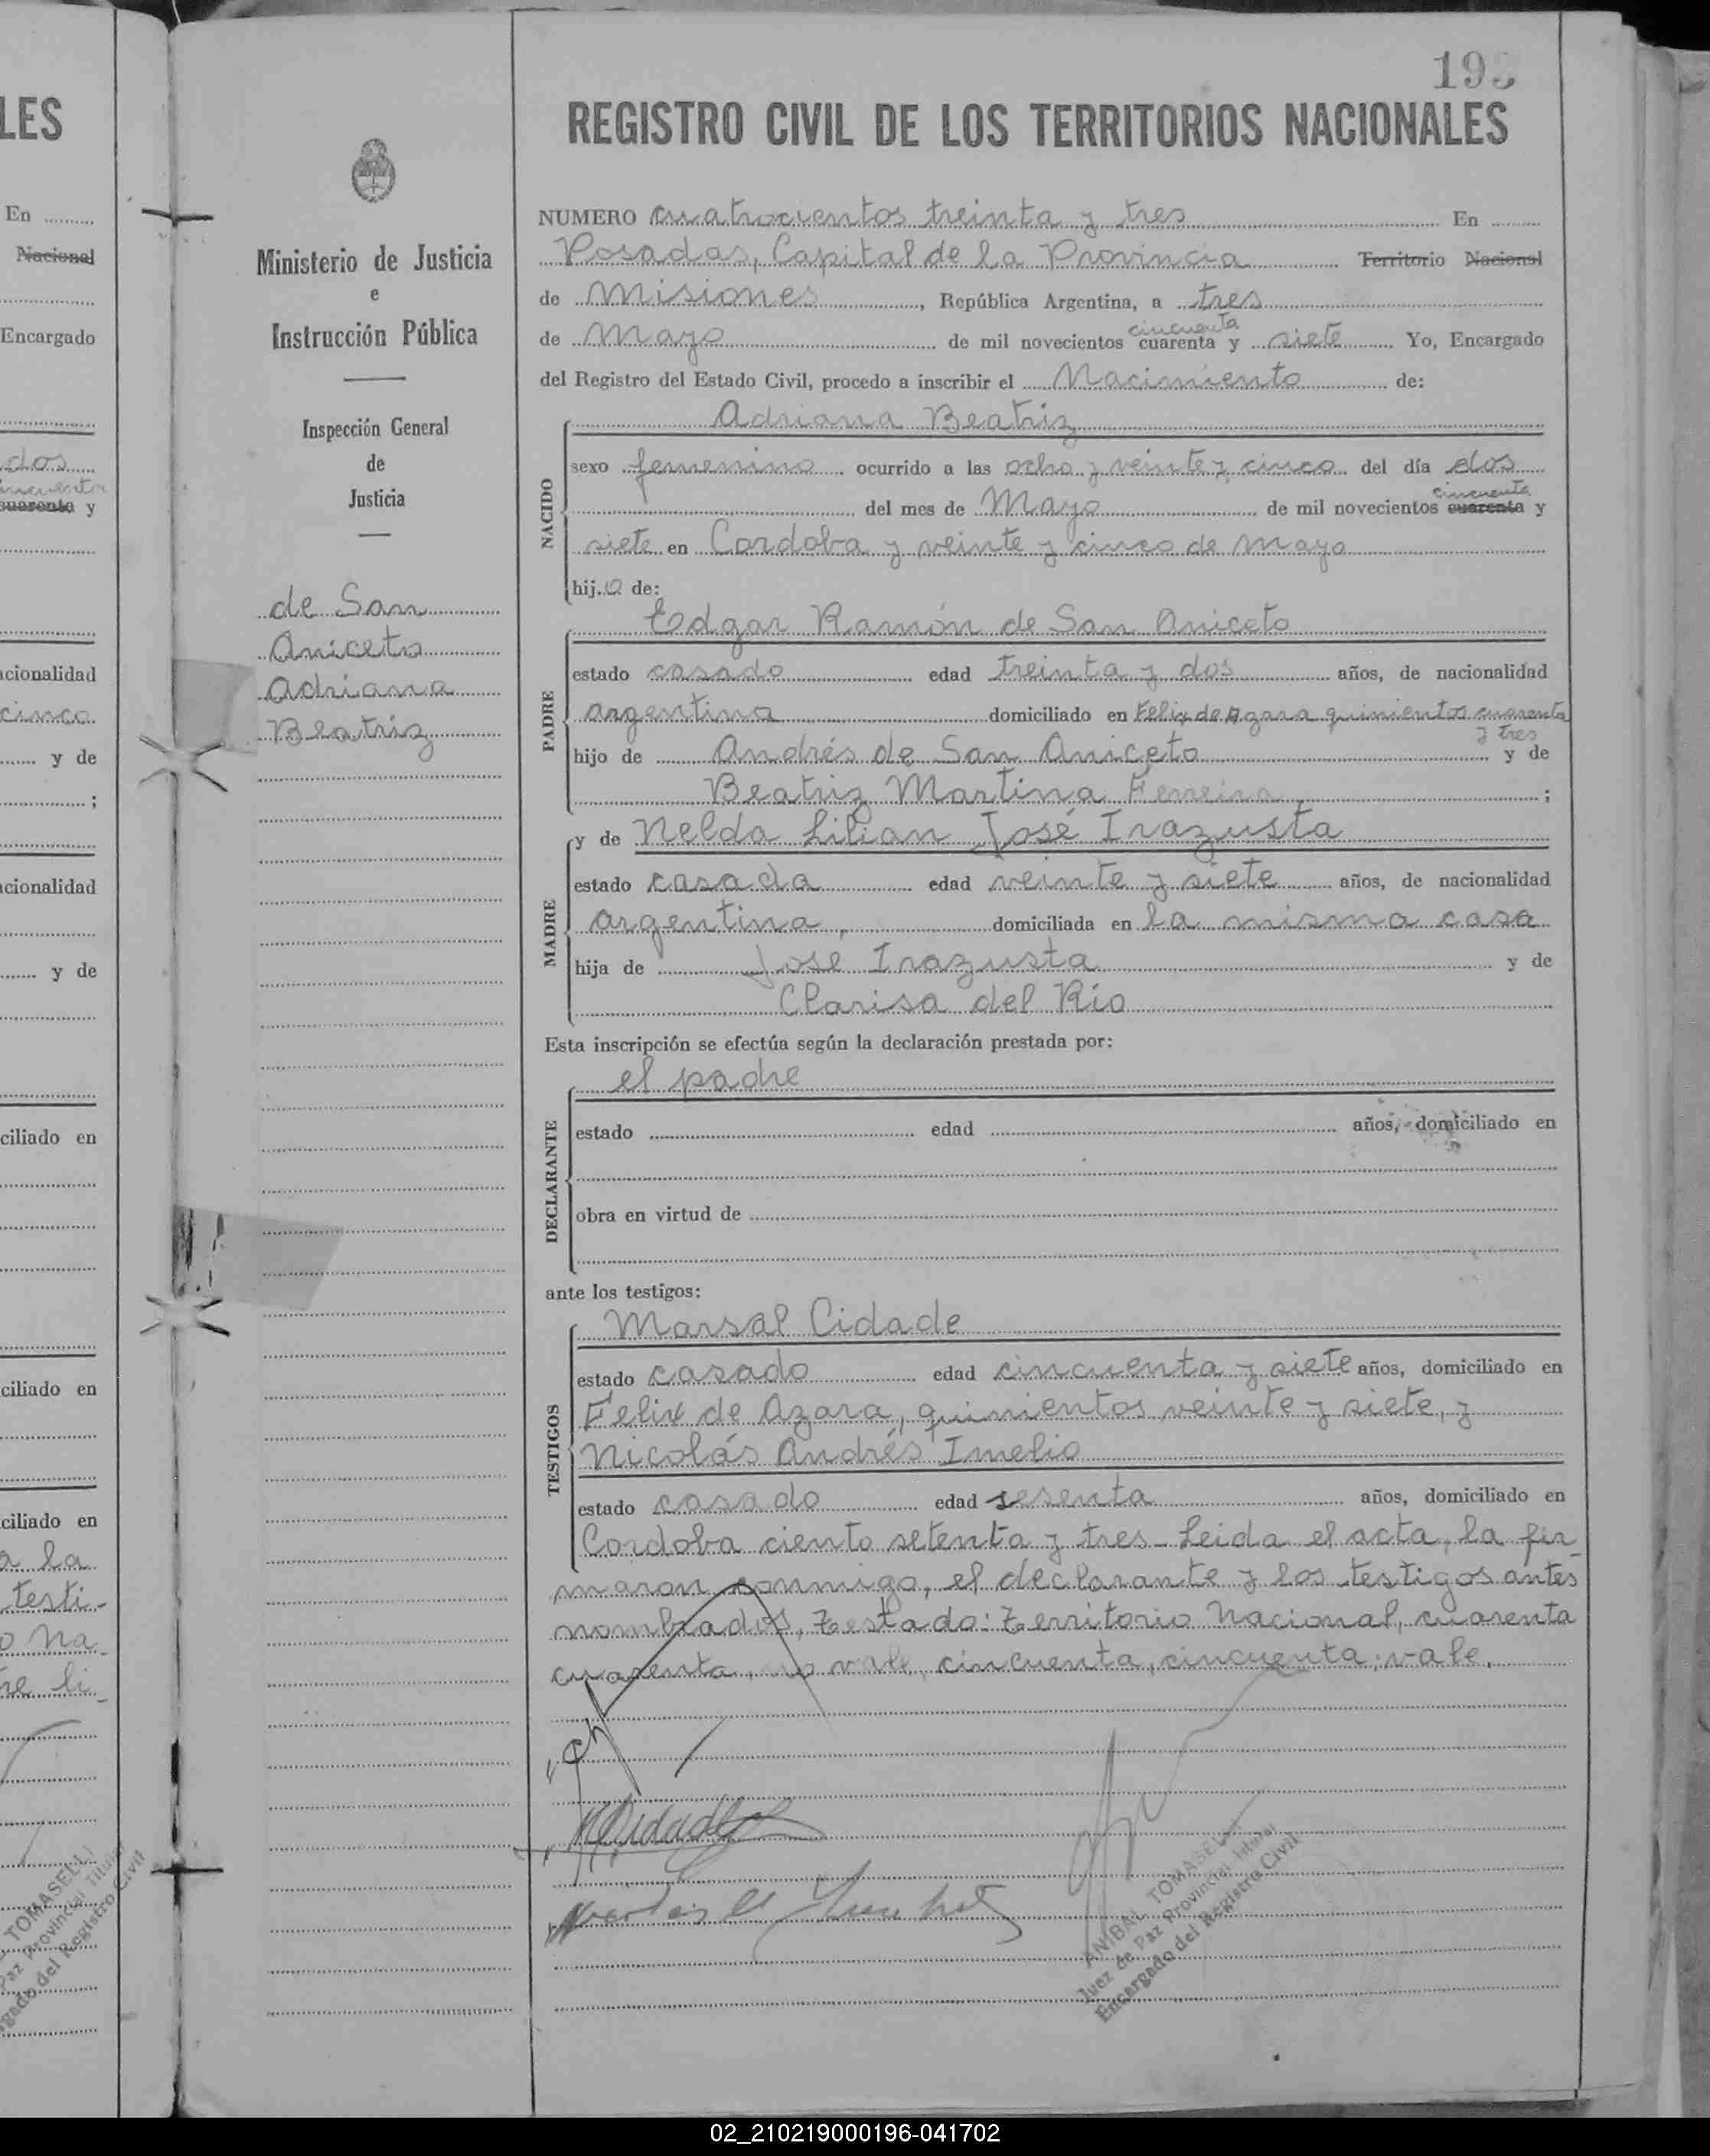 LES
En
Nacional
Encargado
dos
cincuenta
cuarenta y
acionalidad
cinco
y de
;
acionalidad
y de
ciliado en
ciliado en
ciliado en
a la
testi-
o Na
re li
TOMASELLI
Paz Provincial Titular
gado del Registro Civil
Ministerio de Justicia
e
Instrucción Pública
Inspección General
de
Justicia
de San
Aniceto
Adriana
Beatriz
REGISTRO CIVIL DE LOS TERRITORIOS NACIONALES
NUMERO cuatrocientos treinta y tres En
Posadas, Capital de la Provincia Territorio Nacional
de Misiones, República Argentina, a tres
cincuenta
de Mayo de mil novecientos cuarenta y siete Yo, Encargado
del Registro del Estado Civil, procedo a inscribir el Nacimiento de:
NACIDO
Adriana Beatriz
sexo femenino ocurrido a las ocho y veinte y cinco del día dos
cincuenta
del mes de Mayo de mil novecientos cuarenta y
siete en Cordoba y veinte y cinco de mayo
hija de:
PADRE
Edgar Ramón de San Aniceto
estado casado edad treinta y dos años, de nacionalidad
argentina domiciliado en Felix de Azara quinientos cuarenta
y tres
hijo de Andrés de San Aniceto y de
Beatriz Martina Ferreira ;
MADRE
y de Nelda Lilian José Irazusta
estado casada edad veinte y siete años, de nacionalidad
argentina, domiciliada en la misma casa
hija de José Irazusta y de
Clarisa del Rio
Esta inscripción se efectúa según la declaración prestada por:
DECLARANTE
el padre
estado edad años, domiciliado en
obra en virtud de
ante los testigos:
TESTIGOS
Marsal Cidade
estado casado edad cincuenta y siete años, domiciliado en
Felix de Azara, quinientos veinte y siete, y
Nicolás Andrés Imelio
estado casado edad sesenta años, domiciliado en
Cordoba ciento setenta y tres - Leida el acta, la fir-
maron conmigo, el declarante y los testigos antes
nombrados, Testado: Territorio Nacional, cuarenta
cuarenta, no vale, cincuenta, cincuenta; vale.
MCidade
ANIBAL TOMASELLI
Juez de Paz Provincial Titular
Encargado del Registro Civil
02_210219000196-041702